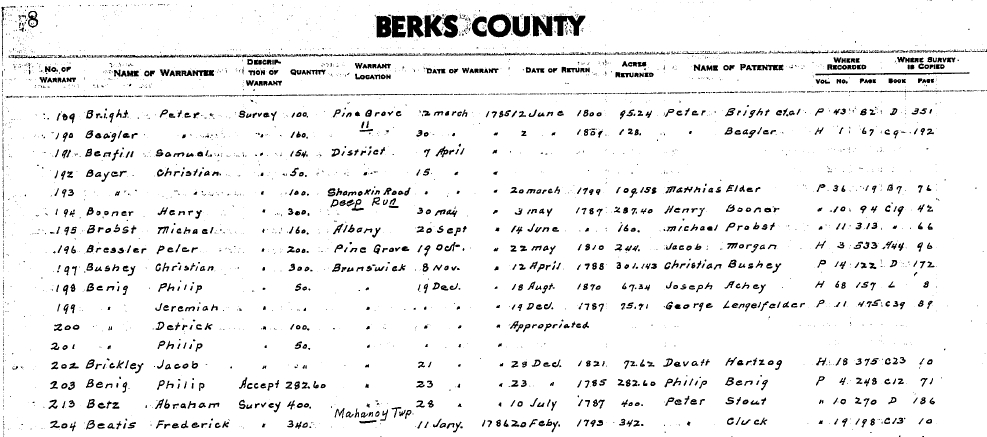 8
BERKS COUNTY
NO. OF WARRANT NAME OF WARRANTEE DESCRIP- TION OF WARRANT QUANTITY WARRANT LOCATION DATE OF WARRANT DATE OF RETURN ACRES RETURNED NAME OF PATENTEE WHERE RECORDED VOL. NO. PAGE WHERE SURVEY IS COPIED BOOK PAGE
189 Bright Peter Survey 100. Pine Grove 2 march 1785 12 June 1800 95.24 Peter Bright etal P 43 82 D 351
190 Beagler " " " 160. 11 30 " " 2 " 1809 128. " Beagler H 1 67 C9 192
191 Benfill Samuel " 154. District 7 April "
192 Bayer Christian " 50. " 15 " "
193 " " " 100. Shamokin Road " " " 20 march 1799 109.158 Matthias Elder P 36 19 B7 76
194 Booner Henry " 300. Deep Run 30 may " 3 may 1787 287.40 Henry Booner " 10 94 C19 42
195 Brobst Michael " 160. Albany 20 Sept " 14 June " 160. michael Probst " 11 313 " 66
196 Bressler Peler " 200. Pine Grove 19 Oct. " 22 may 1810 244. Jacob Morgan H 3 533 A44 96
197 Bushey Christian " 300. Brunswick 8 Nov. " 12 April 1788 301.143 Christian Bushey P 14 122 D 172
198 Benig Philip " 50. " 19 Dec. " 18 Augt. 1870 67.34 Joseph Achey H 68 157 L 8
199 " Jeremiah " " " " " " 19 Dec. 1787 75.71 George Lengelfelder P 11 475 C39 89
200 " Detrick " 100. " " " " Appropriated
201 " Philip " 50. " " " "
202 Brickley Jacob " " " 21 " " 28 Dec. 1821 72.62 Devatt Hertzog H 18 375 C23 10
203 Benig Philip Accept 282.60 " 23 " " 23 " 1785 282.60 Philip Benig P 4 248 C12 71
213 Betz Abraham Survey 400. " 28 " " 10 July 1787 400. Peter Stout " 10 270 D 186
204 Beatis Frederick " 340. Mahanoy Twp 11 Jany. 1786 20 Feby. 1793 342. " Cluck " 19 198 C13 10